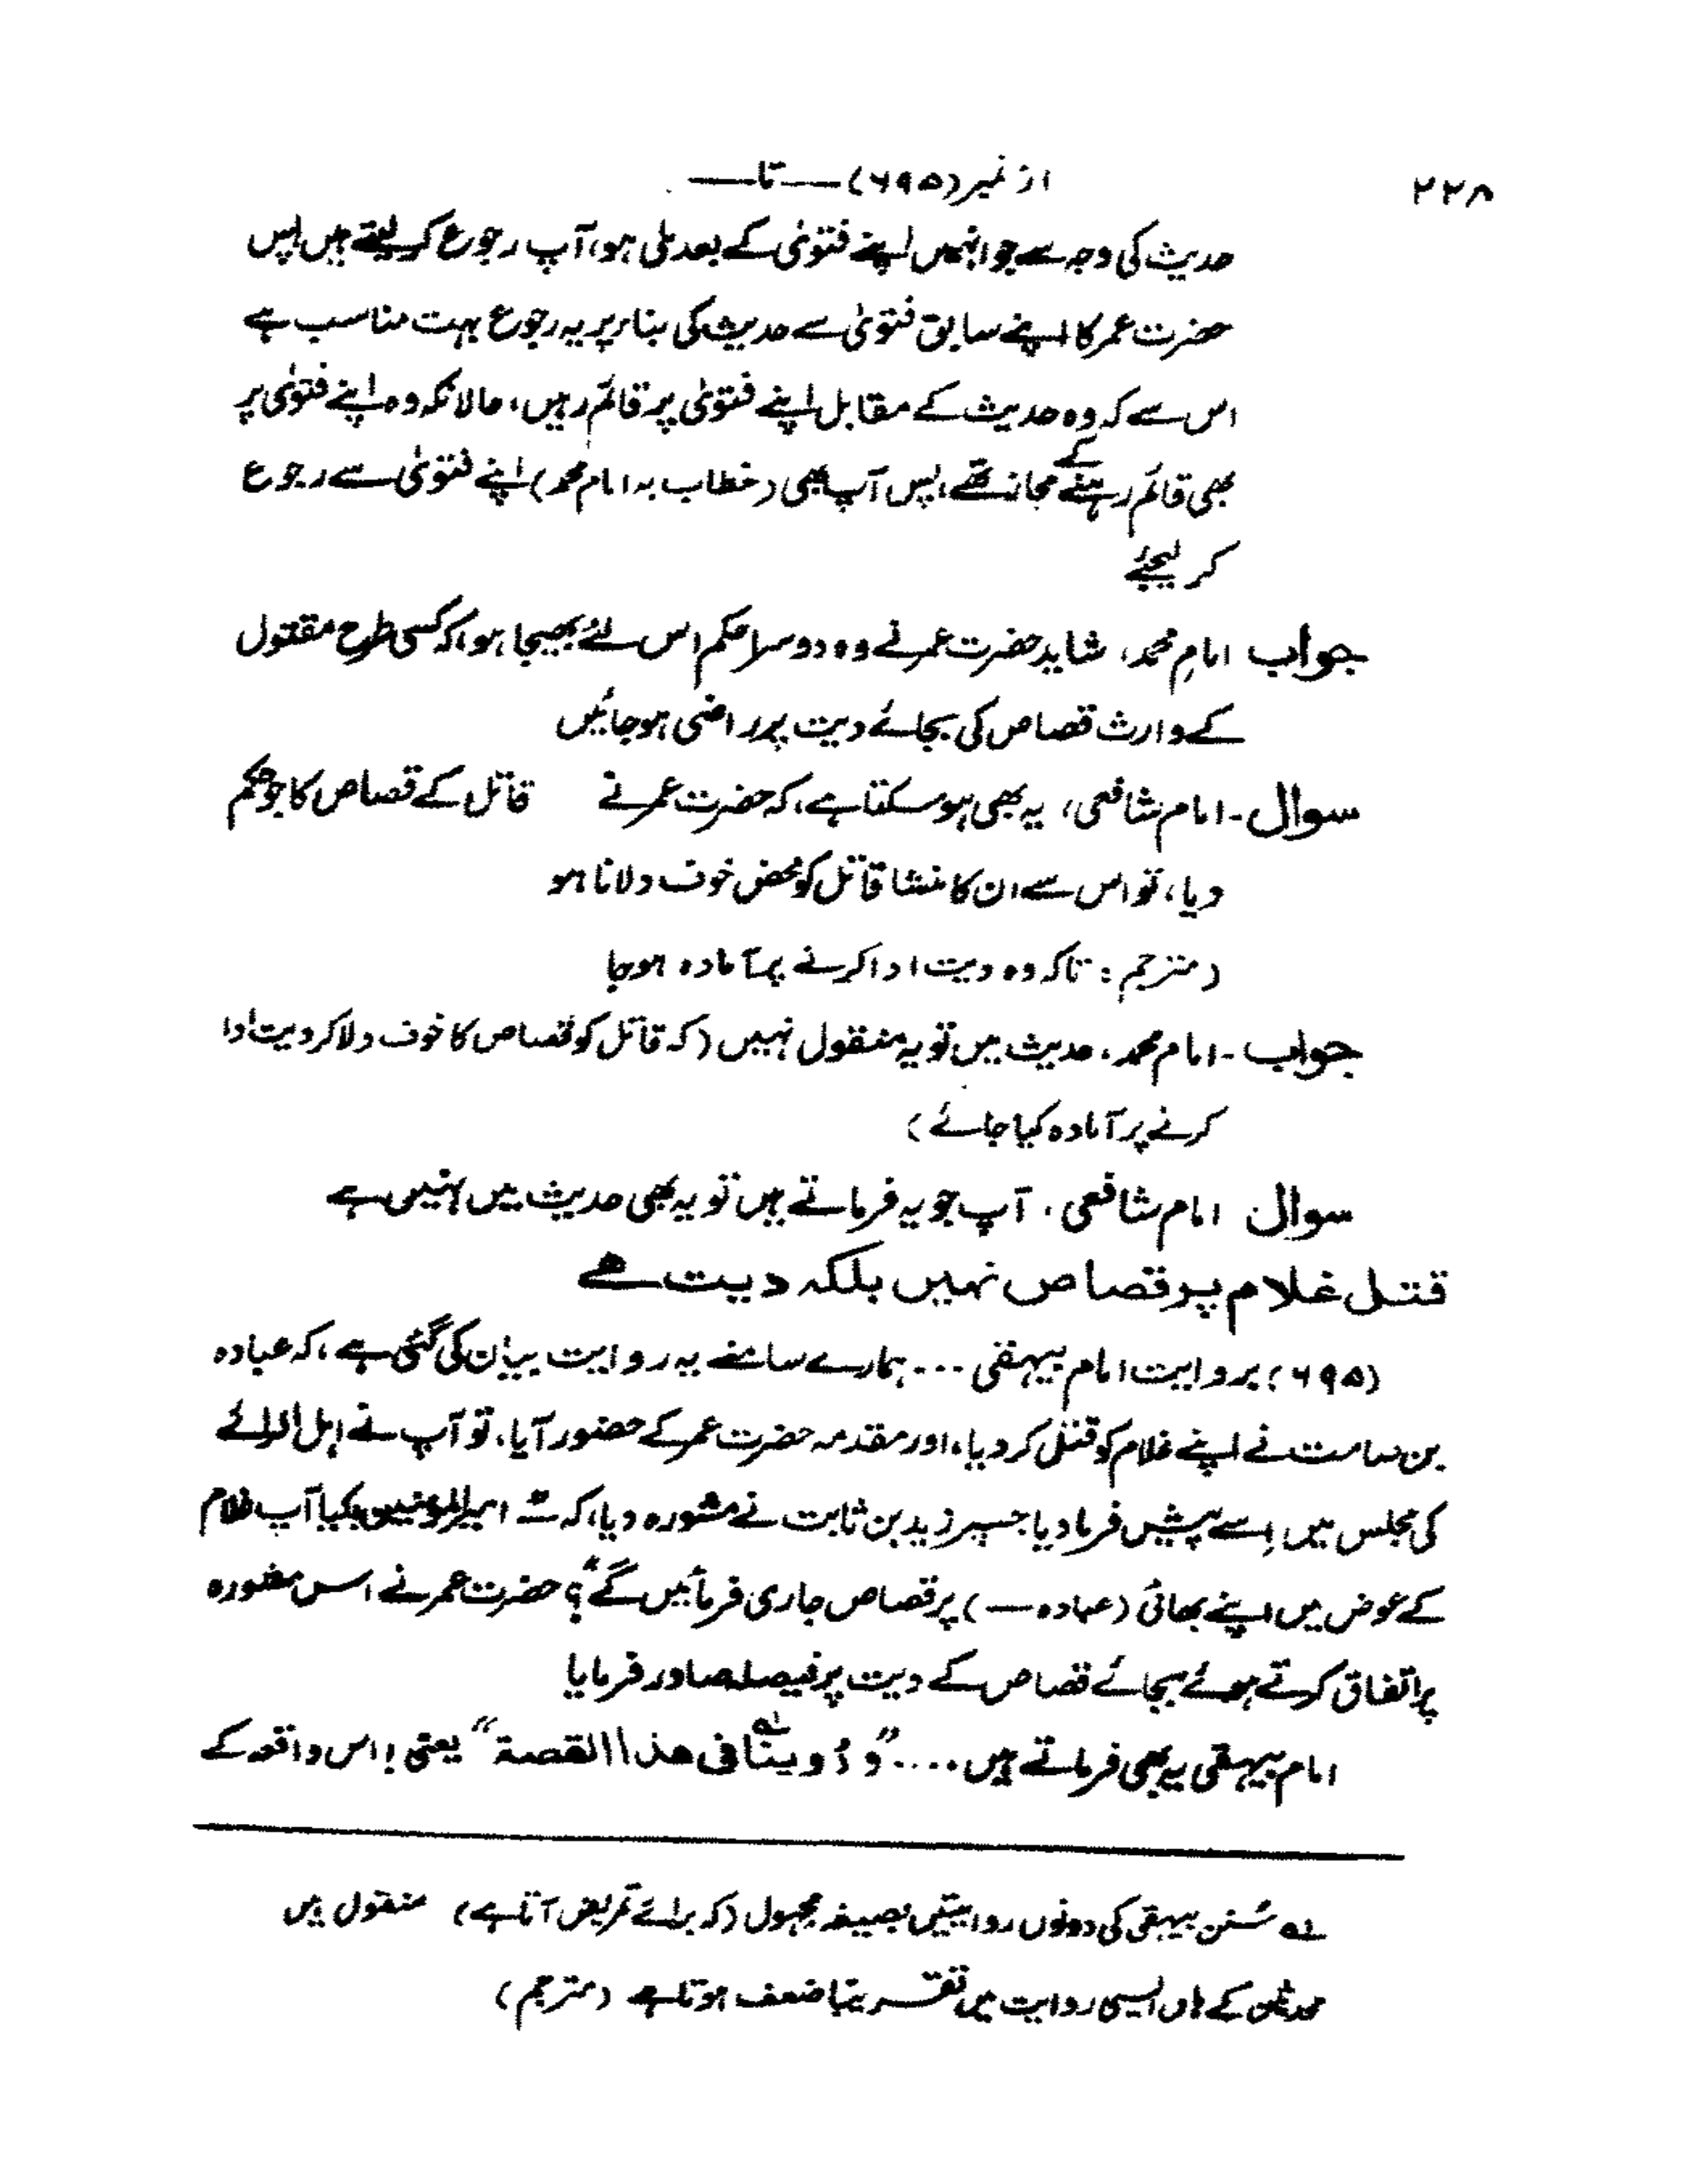 ۲۲۸
از نمبر (۶۹۵) — تا —
حدیث کی وجہ سے جو انہیں اپنے فتویٰ کے بعد ملی ہو، آپ رجوع کر لیتے ہیں پس
حضرت عمر کا اپنے سابق فتویٰ سے حدیث کی بنا پر یہ رجوع بہت مناسب ہے
اس سے کہ وہ حدیث کے مقابل اپنے فتویٰ پر قائم رہیں، حالانکہ وہ اپنے فتویٰ پر
بھی قائم رہنے کے مجاز تھے، پس آپ بھی (خطاب بہ امام محمد) اپنے فتویٰ سے رجوع
کر لیجئے
جواب امام محمد، شاید حضرت عمر نے وہ دوسرا حکم اس لئے بھیجا ہو، کہ کسی طرح مقتول
کے وارث قصاص کی بجائے دیت پر راضی ہو جائیں
سوال ـ امام شافعی، یہ بھی ہو سکتا ہے، کہ حضرت عمر نے قاتل کے قصاص کا جو حکم
دیا، تو اس سے ان کا منشا قاتل کو محض خوف دلانا ہو
(مترجم : تاکہ وہ دیت ادا کرنے پر آمادہ ہو جا
جواب ـ امام محمد، حدیث میں تو یہ منقول نہیں (کہ قاتل کو قصاص کا خوف دلا کر دیت ادا
کرنے پر آمادہ کیا جائے)
سوال امام شافعی، آپ جو یہ فرماتے ہیں تو یہ بھی حدیث میں نہیں ہے
قتل غلام پر قصاص نہیں بلکہ دیت ہے
(۶۹۵) بروایت امام بیہقی ... ہمارے سامنے یہ روایت بیان کی گئی ہے، کہ عبادہ
بن صامت نے اپنے غلام کو قتل کر دیا، اور مقدمہ حضرت عمر کے حضور آیا، تو آپ نے اہل الرائے
کی مجلس میں اِسے پیش فرما دیا جسپر زید بن ثابت نے مشورہ دیا، کہ اے امیر المؤمنین کیا آپ غلام
کے عوض میں اپنے بھائی (عبادہ —) پر قصاص جاری فرمائیں گے"؟ حضرت عمر نے اس مشورہ
پر اتفاق کرتے ہوئے بجائے قصاص کے دیت پر فیصلہ صادر فرمایا
امام بیہقی یہ بھی فرماتے ہیں .... "و رُوینا لہ فی ھذا القصة" یعنی! اس واقعہ کے
لہ سُنن بیہقی کی دونوں روایتیں بصیغہ مجہول (کہ برائے تمریض آتا ہے) منقول ہیں
محدثین کے ہاں ایسی روایت میں تقریباً ضعف ہوتا ہے (مترجم)